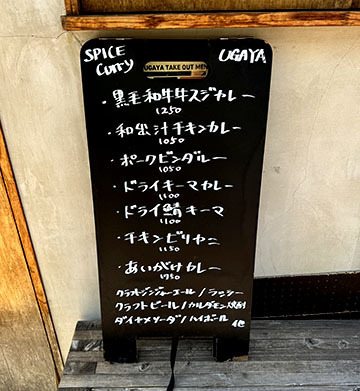 SPICE Curry UGAYA
UGAYA TAKE OUT MEN
・黒毛和牛牛スジカレー
1250
・和出汁チキンカレー
1050
・ポークビンダルー
1050
・ドライキーマカレー
1100
・ドライ鯖キーマ
1100
・チキンビリヤニ
1150
・あいがけカレー
クラフトジンジャーエール/ラッシー
クラフトビール/カルダモン焼酎
ダイヤメソーダ/ハイボール 他